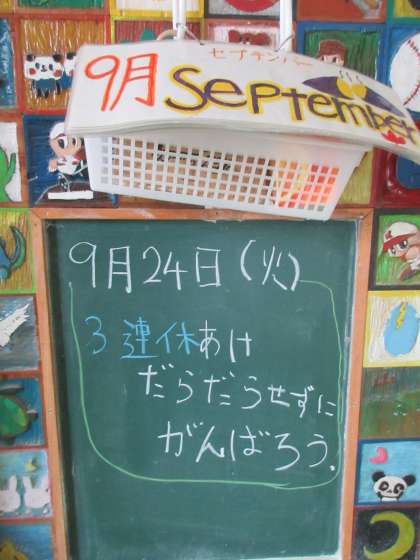 セプテンバー
9月 September
9月24日(火)
3連休あけ
だらだらせずに
がんばろう.